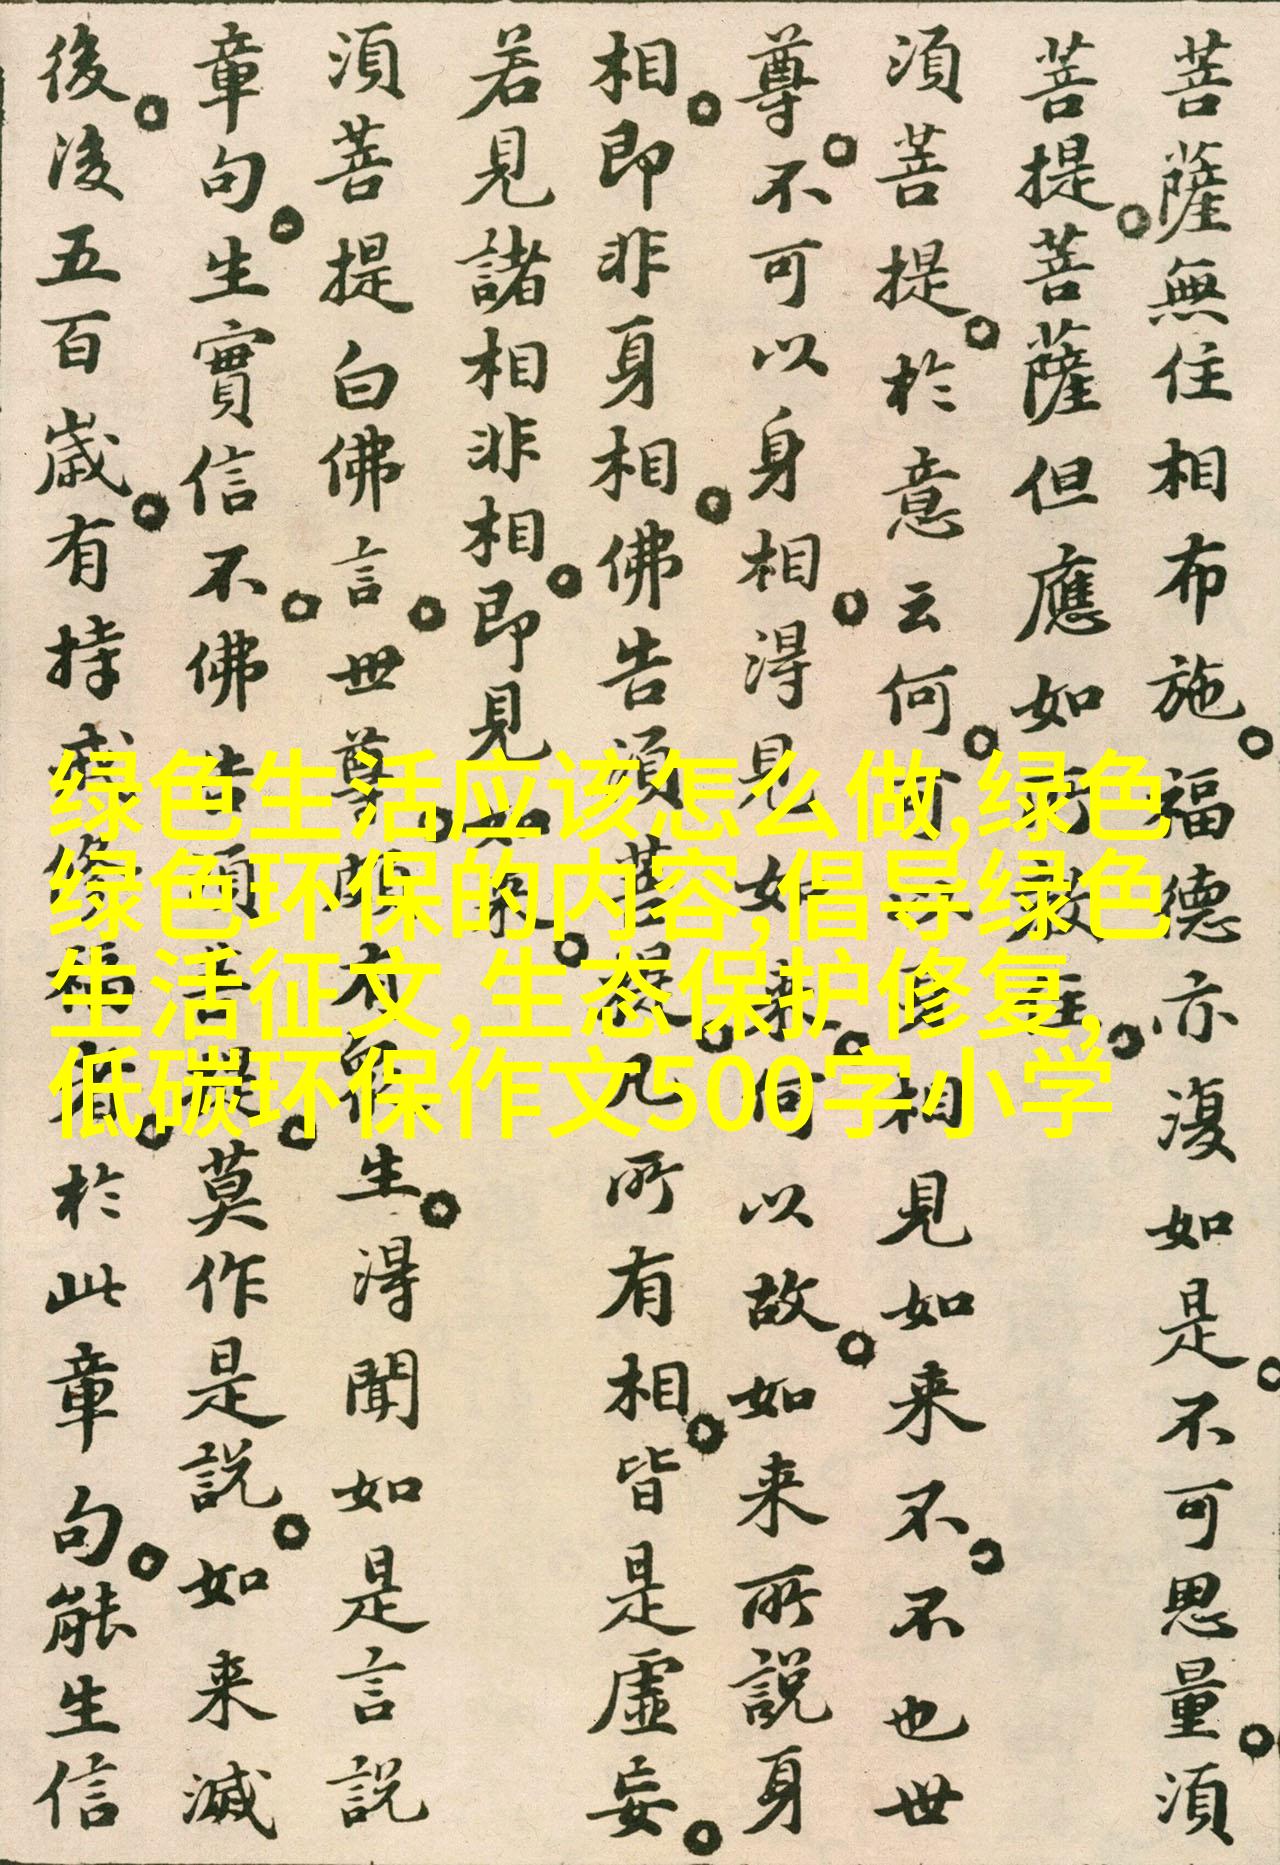 菩薩無住相布施。福德亦復如是。不可思量。須
菩提。菩薩但應如所教住。
須菩提。於意云何。可以身相見如来不。不也世
尊。不可以身相。得見如来。何以故。如来所說身
相。即非身相。佛告須菩提。凡所有相。皆是虛妄。
若見諸相非相。即見如来。
須菩提白佛言。世尊。頗有衆生。得聞如是言說
章句。生實信不。佛告須菩提。莫作是說。如来滅
後。後五百歳。有持戒修福者。於此章句。能生信
绿色生活应该怎么做,绿色
绿色环保的内容,倡导绿色
生活征文,生态保护修复,
低碳环保作文500字小学